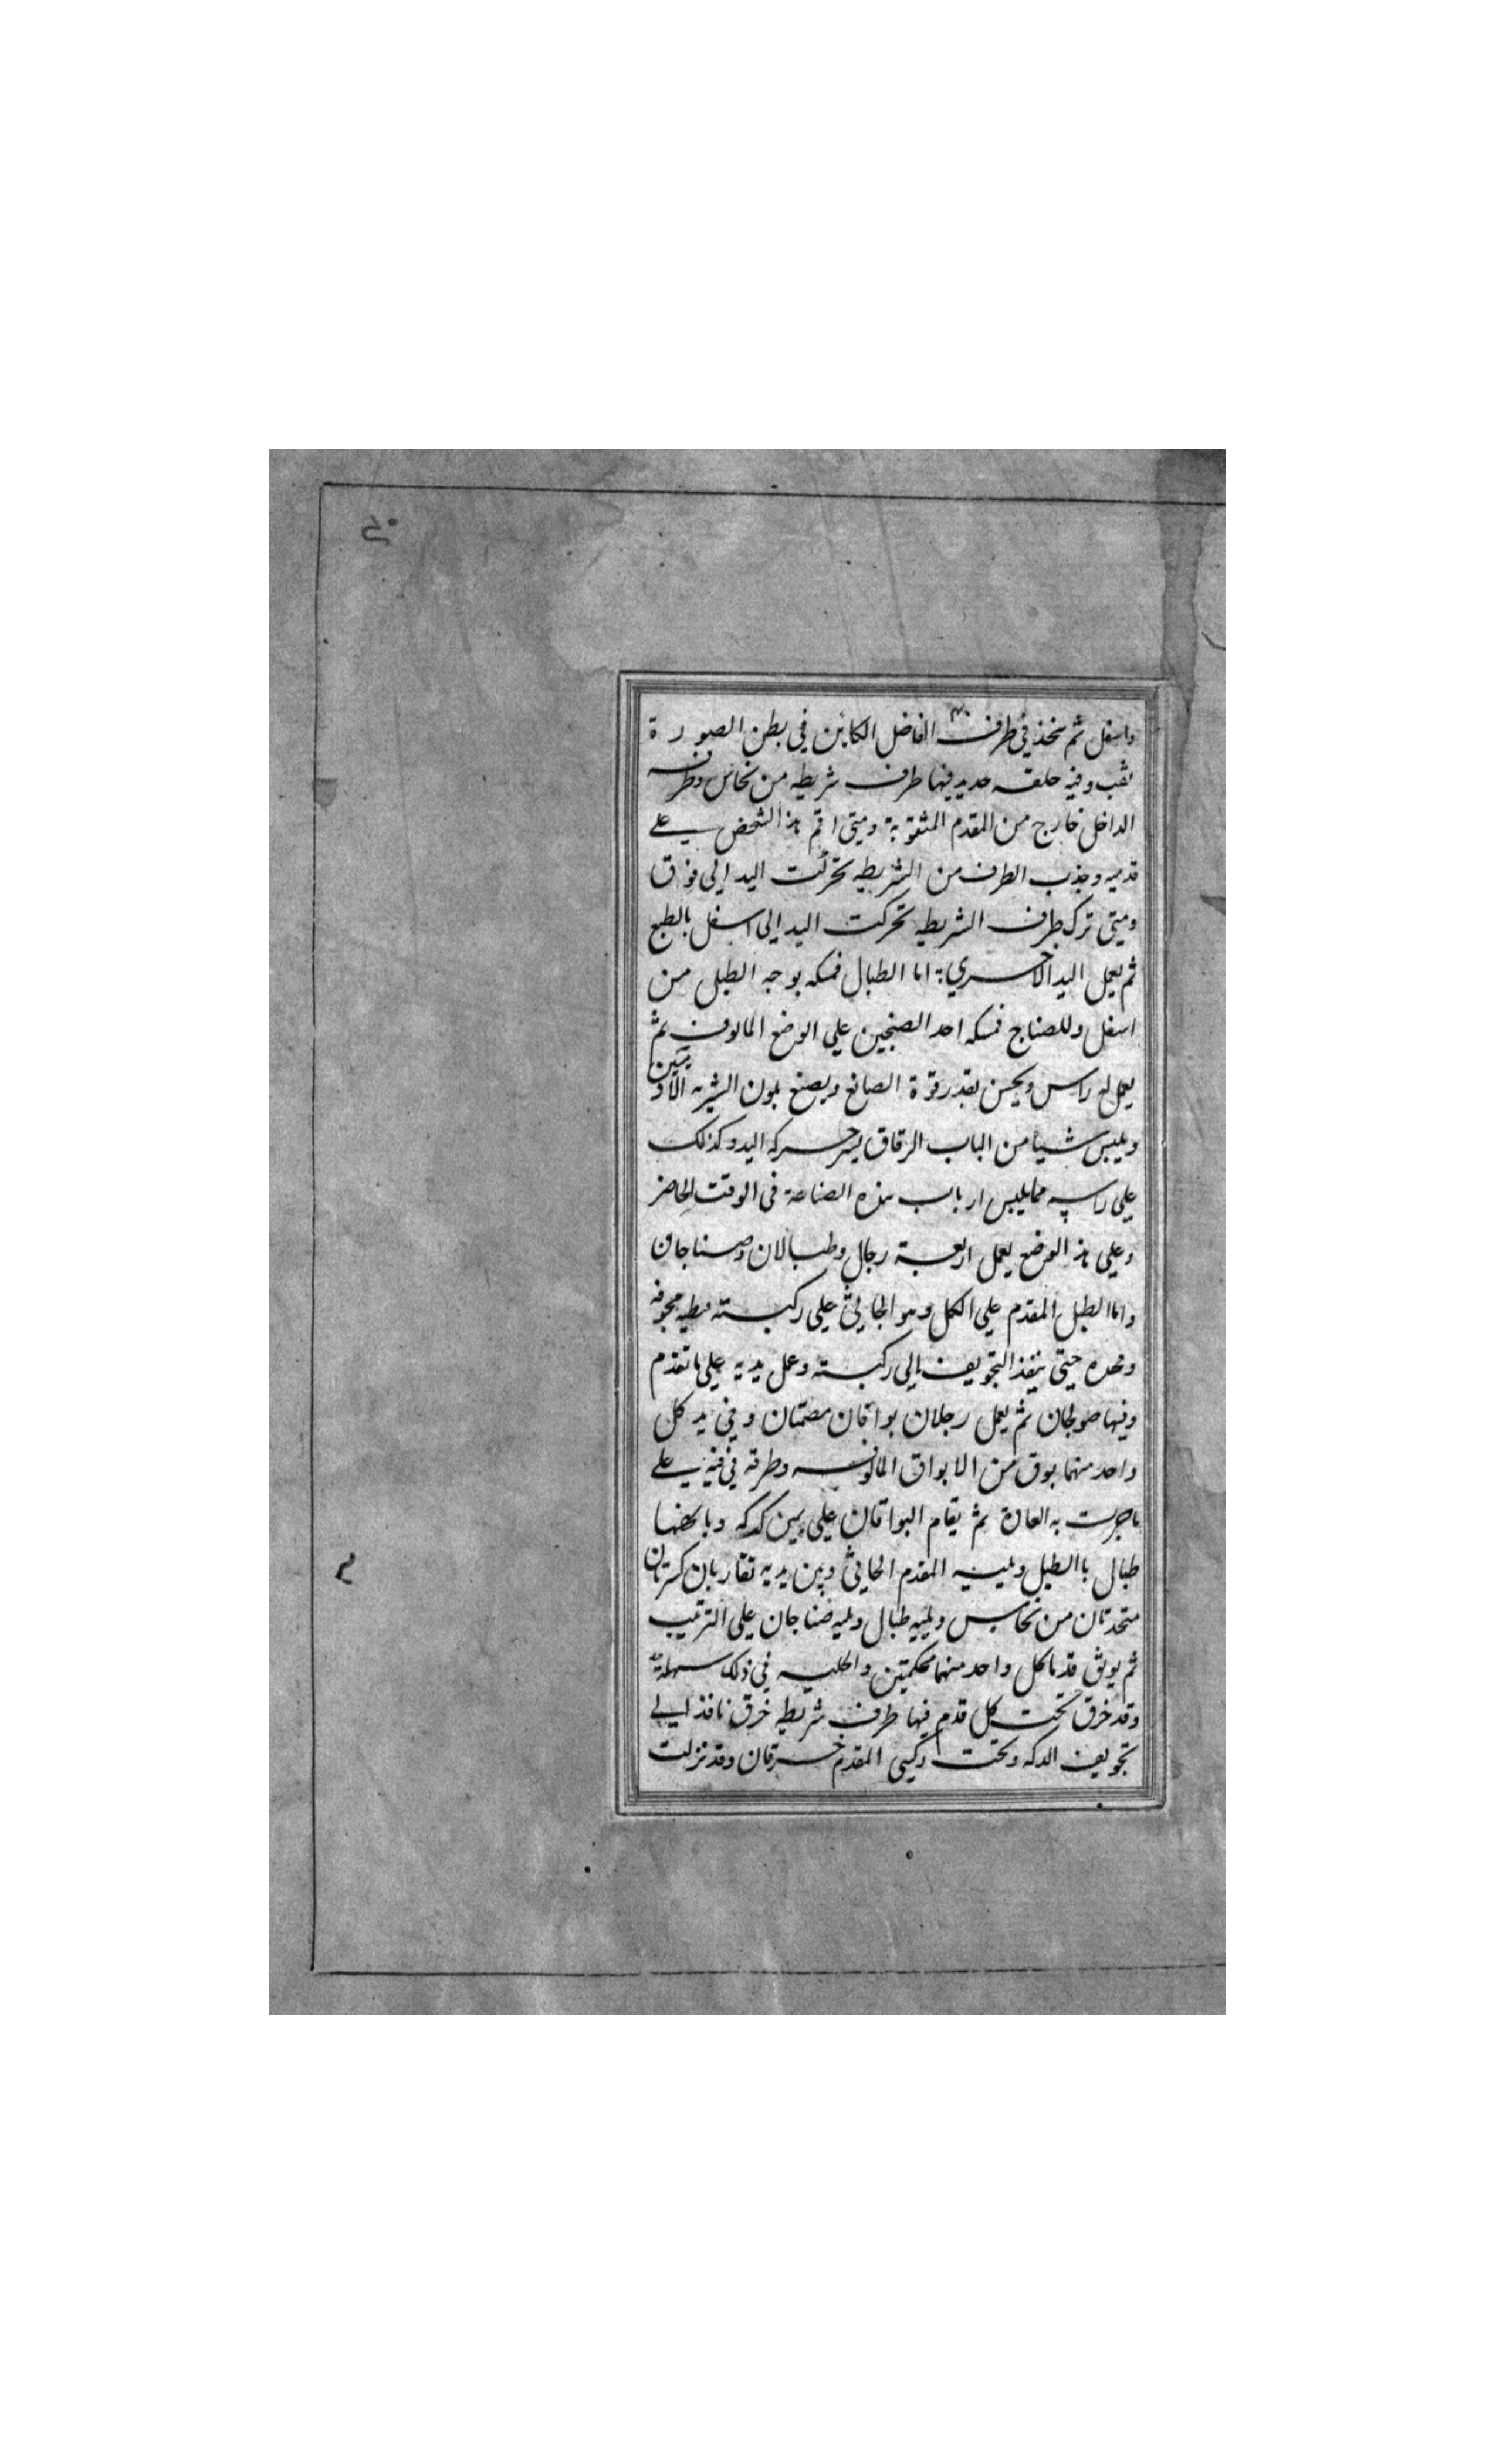 واسفل ثم يتخذ في طرف الفاضل الكاين في بطن الصورة
ثقب وفيه حلقه حديد فيها طرف شريطه من نحاس وطرفه
الداخل خارج من المقدم المثقوبة ومتى اقيم هذا الشخص على
قدميه وجذب الطرف من الشريطه تحركت اليد الى فوق
ومتى ترك طرف الشريطه تحركت اليد الى اسفل بالطبع
ثم يعمل اليد الاخرى اما الطبال فمسكه بوجه الطبل من
اسفل وللصناج فمسكه احد الصنجين على الوضع المالوف ثم
يعمل له راس ويحسن بقدر قوة الصانع ويصنع بلون البشريه الادميين
ويلبس شيا من الباب الرقاق يسر حركه اليد وكذلك
على راسه مما يلبس ارباب هذه الصناعة في الوقت الحاضر
وعلى هذ الوضع يعمل اربعة رجال وطبالان وصناجان
واما الطبل المقدم على الكل وهو الجاثي على ركبته مجوفه
وفخده حيتى ينفذ التجويف الى ركبته وعمل يديه على ما تقدم
وفيها صولجان ثم يعمل رجلان بواقان مصمتان وفي يد كل
واحد منهما بوق من الابواق المالوفه وطرفه في فيه على
ما جرت به العادة ثم يقام البواقان على يمين كدكه
طبال بالطبل ويليه المقدم الجاثي وبين يديه نقاربان
متحدتان من نحاس ويليه طبال ويليه صناجان على الترتيب
ثم يوثق قدما كل واحد منهما محكمتين والحليه في ذلك سهلة
وقد خرق تحت كل قدم فيها طرف شريطه خرق نافذ الى
تجويف الدكه وتحت ركبتي المقدم خرقان وقد نزلت